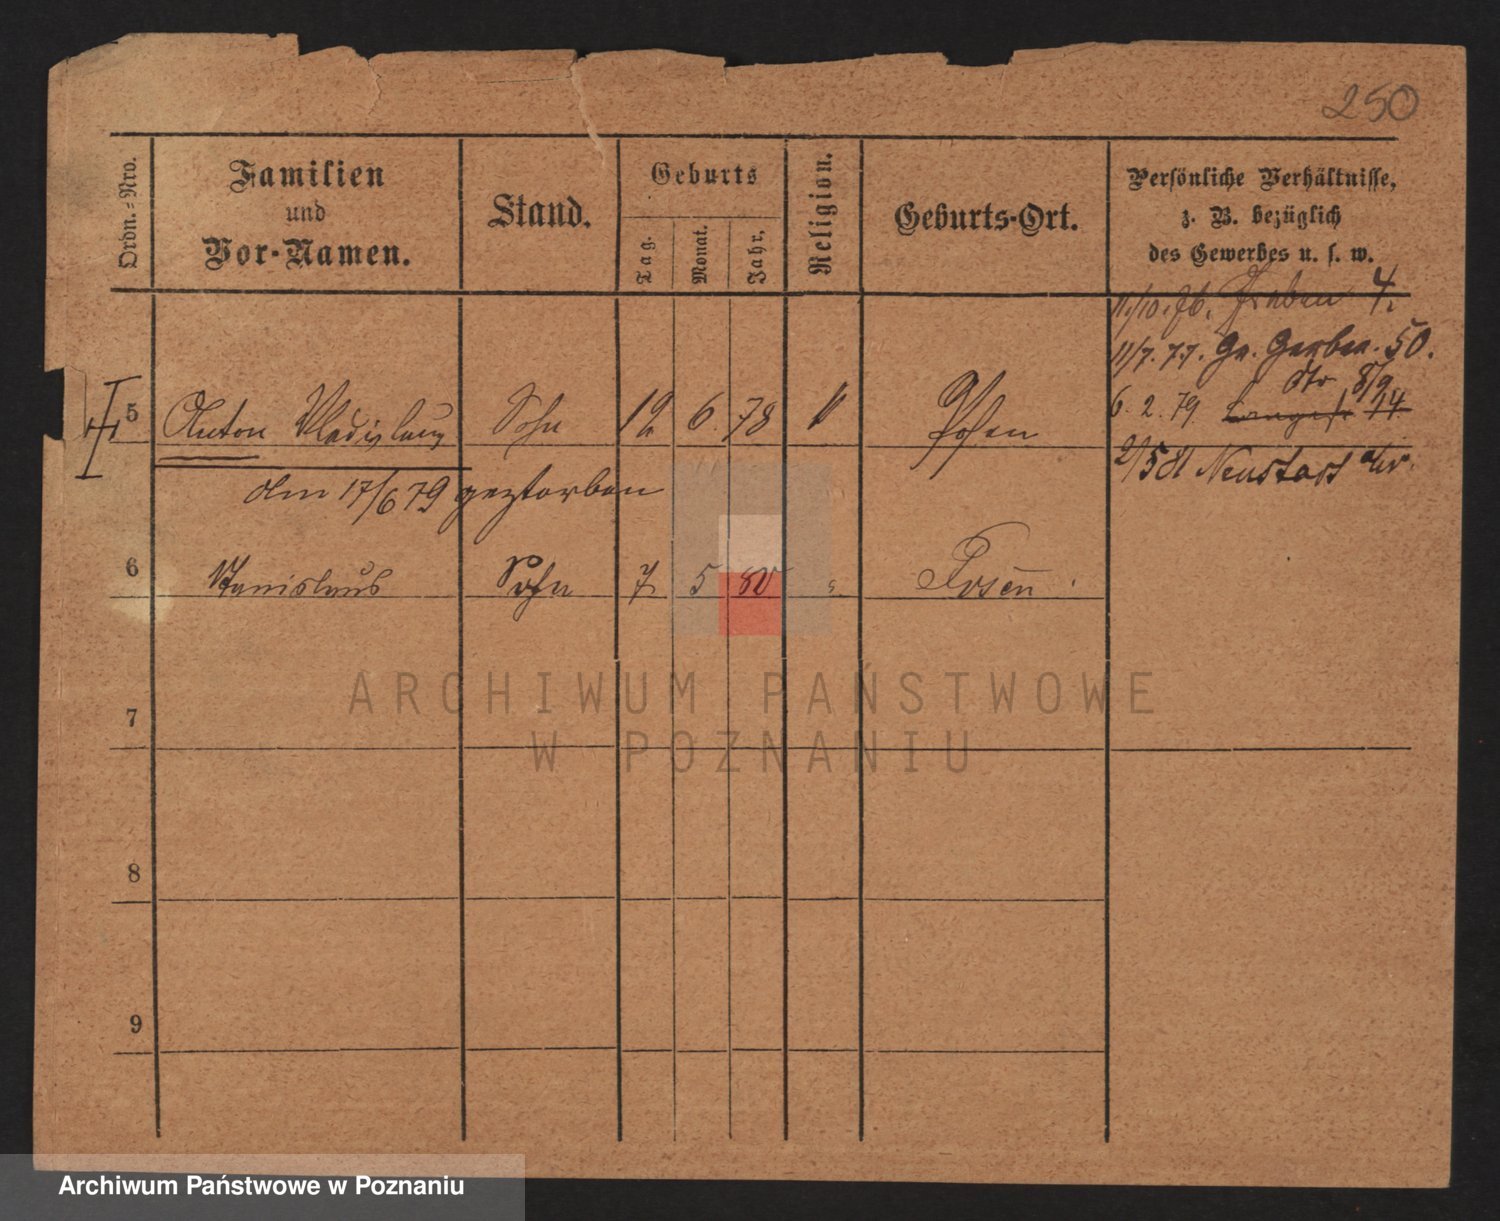 250
Ordn.-Nro.
Familien
und
Vor-Namen.
Stand.
Geburts
Tag.
Monat.
Jahr.
Religion.
Geburts-Ort.
Persönliche Verhältnisse,
z. B. bezüglich
des Gewerbes u. s. w.
11/10. 76. Graben 4.
11/7. 77. Gr. Gerber. 50.
Str 8/9
6. 2. 79. Langest 14
5 Anton Vladislaus Sohn 12 6. 78 " Posen
2/5 81 Neustadt
am 17/6 79 gestorben
6 Stanislaus Sohn 7 5 80 " Posen
7
8
9
ARCHIWUM PAŃSTWOWE
W POZNANIU
Archiwum Państwowe w Poznaniu